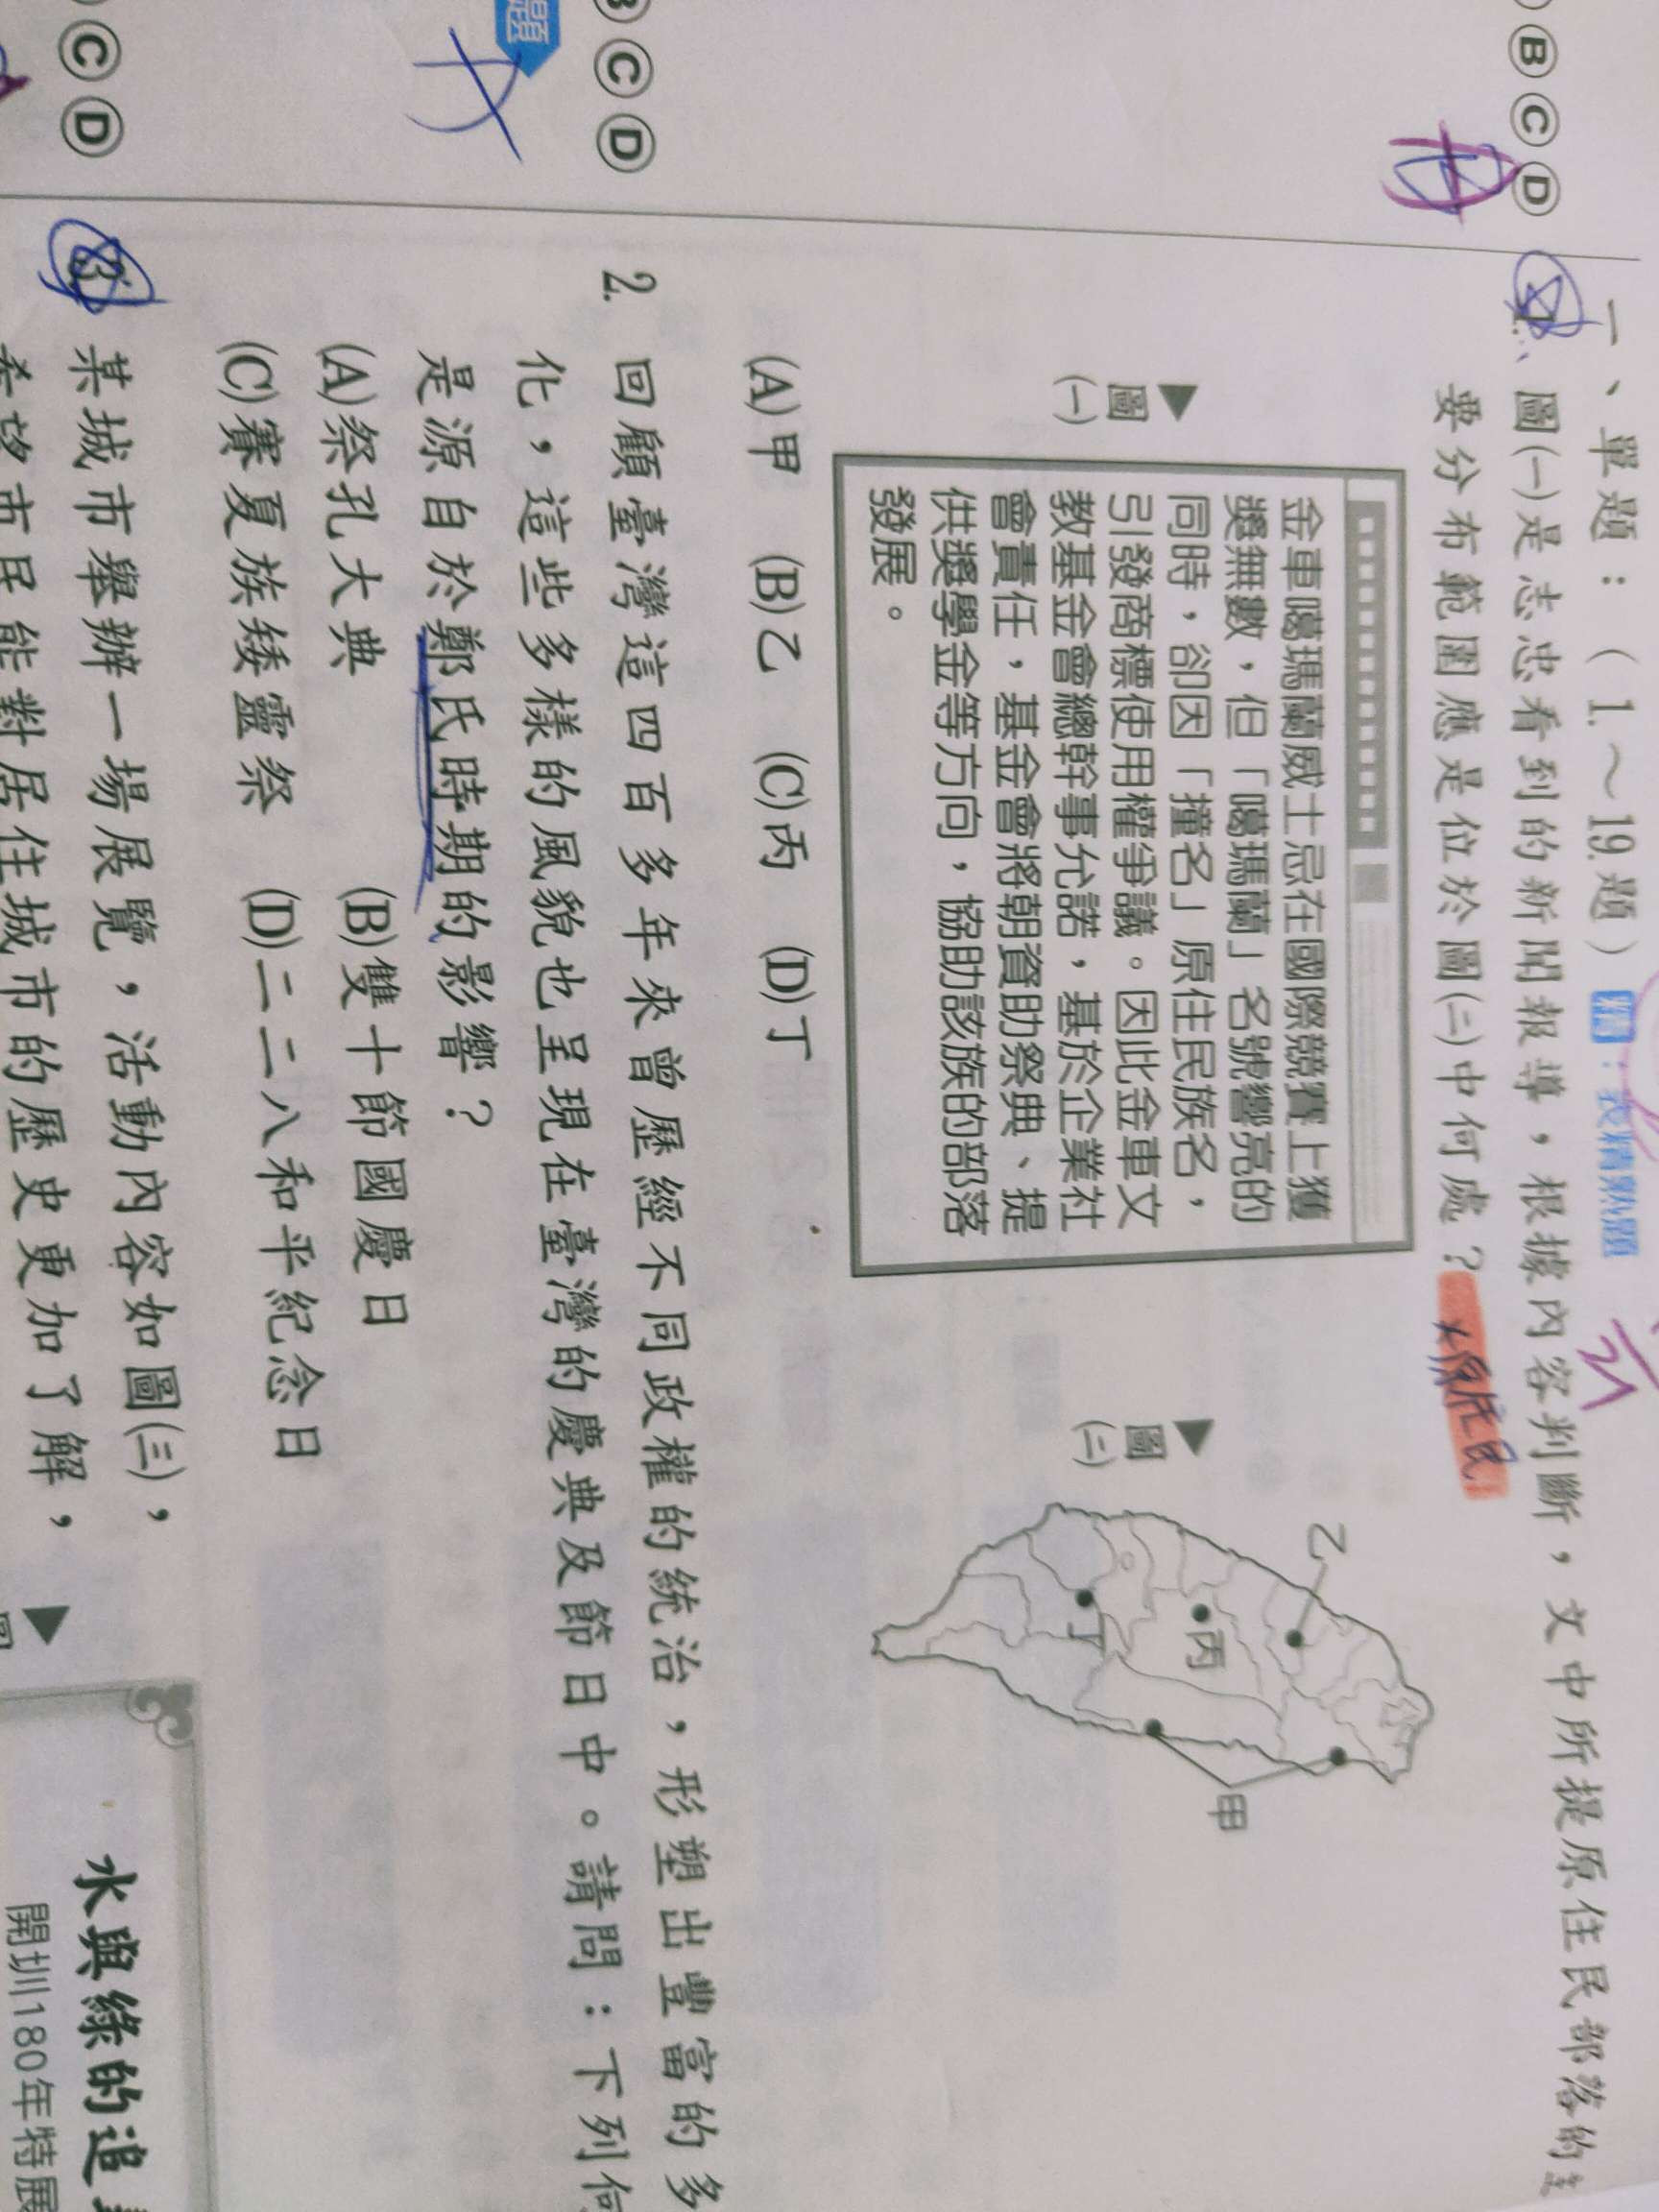 B C D
一、單題：（1.～19.題）
1. 圖(一)是志忠看到的新聞報導，根據內容判斷，文中所提原住民部落的主
要分布範圍應是位於圖(二)中何處？
原住民
金車噶瑪蘭威士忌在國際競賽上獲
獎無數，但「噶瑪蘭」名號響亮的
同時，卻因「撞名」原住民族名，
引發商標使用權爭議。因此金車文
教基金會總幹事允諾，基於企業社
會責任，基金會將朝資助祭典、提
供獎學金等方向，協助該族的部落
發展。
▲圖(一)
乙
丙
丁
甲
▲圖(二)
(A)甲 (B)乙 (C)丙 (D)丁
C D
題
2. 回顧臺灣這四百多年來曾歷經不同政權的統治，形塑出豐富的多
化，這些多樣的風貌也呈現在臺灣的慶典及節日中。請問：下列何
是源自於鄭氏時期的影響？
(A)祭孔大典 (B)雙十節國慶日
(C)賽夏族矮靈祭 (D)二二八和平紀念日
C D
3. 某城市舉辦一場展覽，活動內容如圖(三)，
希望市民能對居住城市的歷史更加了解，
▲
水與綠的追
開圳180年特展